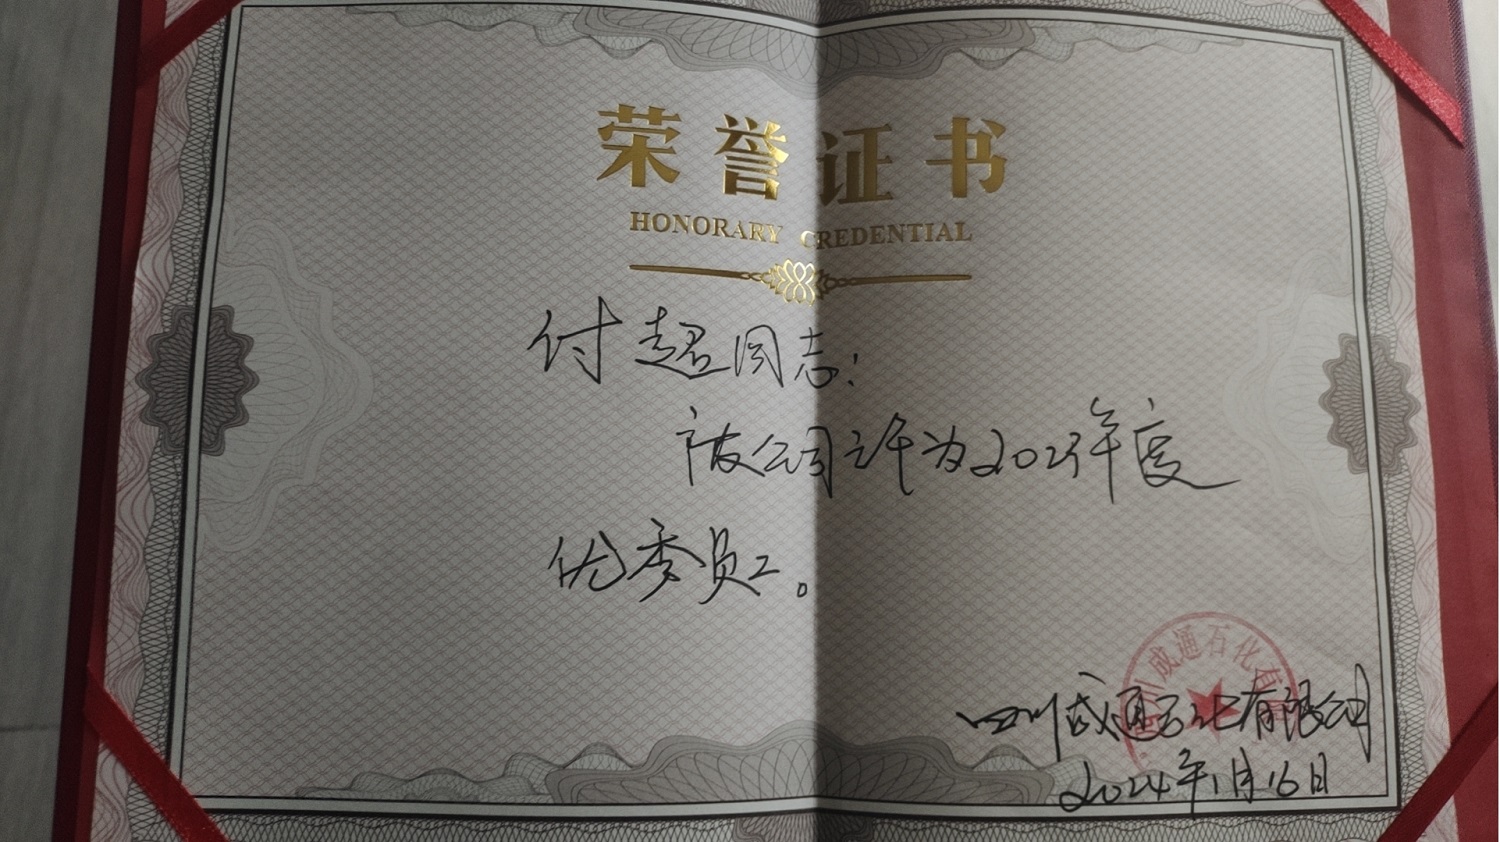 荣誉证书
HONORARY CREDENTIAL
付超同志：
被公司评为2023年度
优秀员工。
四川成通石化有限公司
2024年1月16日
川成通石化有